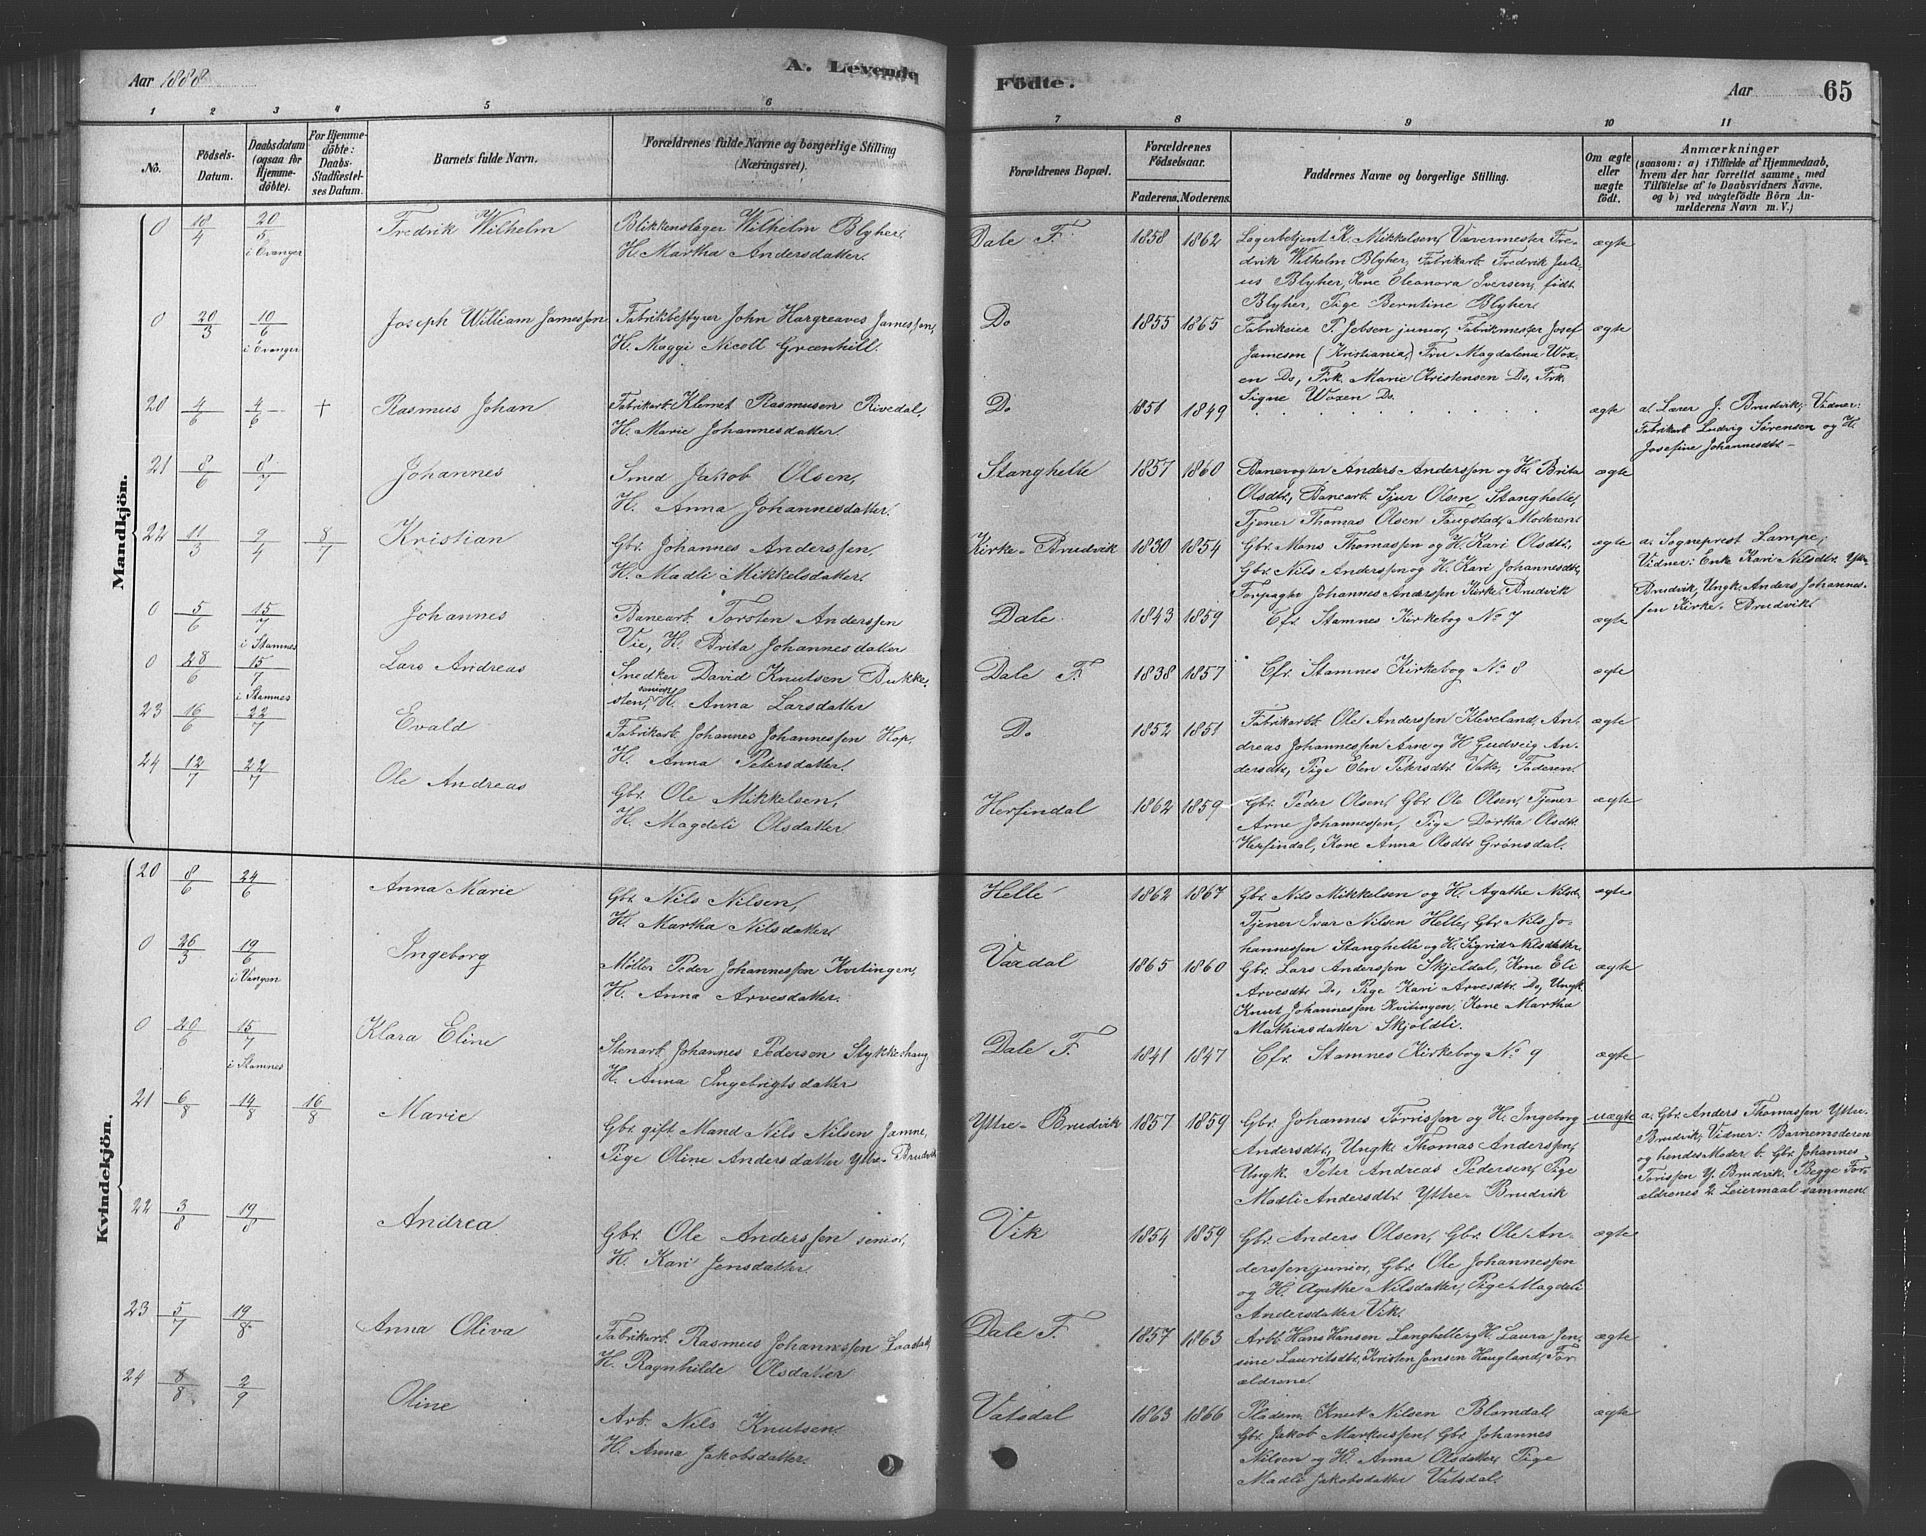 Aar 1888
A. Levende
Födte.
Aar
65
1
2
3
4
5
6
7
8
9
10
11
No.
Födsels-
Datum.
Daabsdatum
(ogsaa for
Hjemme-
döbte).
For Hjemme-
döbte:
Daabs-
Stadfæstel-
ses Datum.
Barnets fulde Navn.
Forældrenes fulde Navne og borgerlige Stilling
(Næringsvei).
Forældrenes Bopæl.
Forældrenes
Födselsaar.
Faderens. Moderens.
Faddernes Navne og borgerlige Stilling.
Om ægte
eller
uægte
födt.
Anmærkninger
(saasom: a) i Tilfælde af Hjemmedaab,
hvem der har forrettet samme, med
Tilföielse af to Daabsvidners Navne,
og b) ved uægtefödte Börn An-
melderens Navn m. V.)
Mandkjön.
0 18/4 20/5 i Evanger
Fredrik Wilhelm
Blikkenslager Wilhelm Blyher,
H. Martha Andersdatter.
Dale F. 1858 1862
Lagerbetjent K. Mikkelsen, Vævermester Fre-
drik Wilhelm Blyher, Fabrikarb. Fredrik Juli-
us Blyher, Kone Eleonora Iversen, født
Blyher, Pige Berntine Blyher.
ægte
0 20/3 10/6 i Evanger
Joseph William Jamessen
Fabrikbestyrer John Hargreaves Jamessen,
H. Maggi Nicoll Greenhill.
Do 1855 1865
Fabrikeier P. Jebsen junior, Fabrikmester Josef
Jameson (Kristiania,) Fru Magdalena Wox-
en Do, Frk. Marie Kristensen Do, Frk.
Signe Woxen Do.
ægte
20 4/6 4/6 +
Rasmus Johan
Fabrikarb. Klemet Rasmusen Rivedal,
H. Marie Johannesdatter.
Do 1851 1849
ægte
a. Lærer J. Brudvik, Vidner:
Fabrikarb. Ludvig Sørensen og H.
Josefine Johannesdtr.
21 8/6 8/7
Johannes
Smed Jakob Olsen,
H. Anna Johannesdatter.
Stanghelle 1857 1860
Banevogter Anders Anderssen og H. Brita
Olsdtr, Banearb. Sjur Olsen Stanghelle,
Tjener Thomas Olsen Fugstad, Moderen.
ægte
22 11/3 9/4 8/7
Kristian
Gbr. Johannes Anderssen,
H. Madli Mikkelsdatter.
Kirke-Brudvik 1830 1854
Gbr. Mons Thomassen og H. Kari Olsdtr,
Gbr. Nils Anderssen og H. Kari Johannesdtr,
Forpagter Johannes Anderssen Kirke-Brudvik
ægte
a. Sogneprest Lampe,
Vidner: Enke Kari Nilsdtr. Ytre-
Brudvik, Ungk. Anders Johannes-
sen Kirke-Brudvik.
0 5/6 15/7 i Stamnes
Johannes
Banearb. Torsten Anderssen
Vie, H. Brita Johannesdatter
Dale 1843 1859
Cfr. Stamnes Kirkebog No 7
ægte
0 28/6 15/7 i Stamnes
Lars Andreas
Snedker David Knutsen Bukke-
sten, senior H. Anna Larsdatter
Dale F. 1838 1857
Cfr. Stamnes Kirkebog No 8
ægte
23 16/6 22/7
Evald
Fabrikarb. Johannes Johannessen Hop,
H. Anna Petersdatter.
Do 1852 1851
Fabrikarb. Ole Anderssen Kleveland, An-
dreas Johannessen Arne og H Gudveig An-
dersdtr, Pige Elen Petersdtr. Vatle, Faderen.
ægte
24 12/7 22/7
Ole Andreas
Gbr. Ole Mikkelsen,
H. Magdeli Olsdatter
Herfindal 1862 1859
Gbr. Peder Olsen, Gbr. Ole Olsen, Tjener
Arne Johannessen, Pige Dortha Olsdtr.
Herfindal, Kone Anna Olsdtr Grønsdal.
ægte
Kvindekjön.
20 8/6 24/6
Anna Marie
Gbr. Nils Nilsen,
H. Martha Nilsdatter.
Helle 1862 1867
Gbr. Nils Mikkelsen og H. Agathe Nilsdtr,
Tjener Ivar Nilsen Helle, Gbr. Nils Jo-
hannessen Stanghelle og H. Sigrid Nilsdatter.
ægte
0 26/3 19/6 i Vangen
Ingeborg
Møller Peder Johannessen Kvitingen,
H. Anna Arvesdatter.
Vaxdal 1865 1860
Gbr. Lars Anderssen Skjeldal, Kone Eli
Arvesdtr Do, Pige Kari Arvesdtr. Do, Ungk
Knut Johannessen Kvitingen, Kone Martha
Mathiasdatter Skjoldli.
ægte
0 20/6 15/7 i Stamnes
Klara Eline
Stenarb. Johannes Pederson Stykkeshaug
H. Anna Ingebrigtsdatter
Dale F. 1841 1847
Cfr. Stamnes Kirkebog No 9
ægte
21 6/8 14/8 16/8
Marie
Gbr. gift Mand Nils Nilsen Jamne,
Pige Oline Andersdatter Ytre-Brudvik
Yttre-Brudvik 1857 1859
Gbr. Johannes Torrissen og H. Ingeborg
Andersdtr, Ungk. Thomas Anderssen,
Ungk. Peter Andreas Pedersen, Pige
Madli Andersdtr. Yttre-Brudvik
uægte
a. Gbr. Anders Thomassen Yttre-
Brudvik, Vidner: Barnemoderen
og hendes Moder b. Gbr. Johannes
Torissen Y. Brudvik. Begge For-
ældrenes 2. Leiermaal sammen.
22 3/8 19/8
Andrea
Gbr. Ole Anderssen senior,
H. Kari Jensdatter.
Vik 1854 1859
Gbr. Anders Olsen, Gbr. Ole An-
derssen junior, Gbr. Ole Johannessen
og H. Agathe Nilsdatter, Pige Magdeli
Andersdatter Vik.
ægte
23 5/7 19/8
Anna Oliva
Fabrikarb. Rasmus Johannessen
H. Ragnhilde Olsdatter
Dale F. 1857 1863
Arb. Hans Hansen Langhelle og H. Laura Jen-
sine Lauritsdtr. Kristen Jonsen Haugland, For-
ældrene.
ægte
24 8/8 2/9
Oline
Arb. Nils Knutsen
H. Anna Jakobsdatter.
Vatsdal 1863 1866
Pladsm. Knut Nilsen Blomdal,
Gbr. Jakob Markussen, Gbr. Johannes
Nilsen og H. Anna Olsdatter, Pige
Madli Jakobsdatter Vatsdal.
ægte